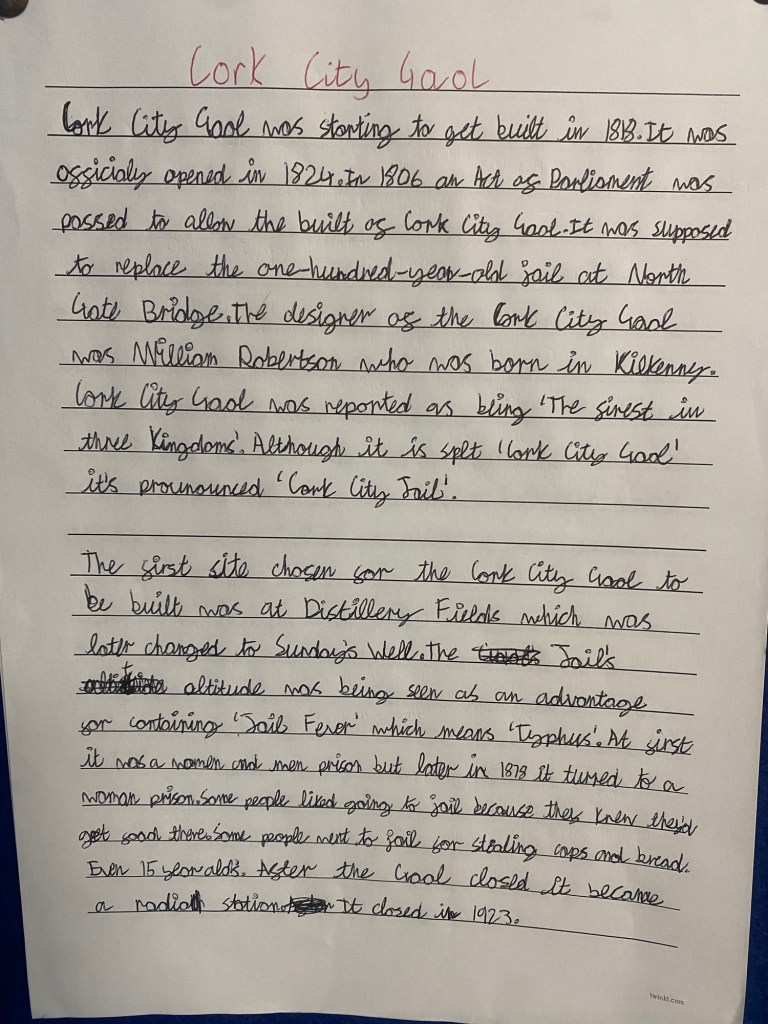 Cork City Gaol
Cork City Gaol was starting to get built in 1818. It was
officialy opened in 1824. In 1806 an Act of Parliament was
passed to allow the built of Cork City Gaol. It was supposed
to replace the one-hundred-year-old jail at North
Gate Bridge. The designer of the Cork City Gaol
was William Robertson who was born in Kilkenny.
Cork City Gaol was reported as being 'The finest in
three Kingdoms'. Although it is splt 'Cork City Gaol'
it's prounounced 'Cork City Jail'.
The first site chosen for the Cork City Gaol to
be built was at Distillery Fields which was
later changed to Sunday's Well. The Jail's
altitude was being seen as an advantage
for containing 'Jail Fever' which means 'Typhus'. At first
it was a women and men prison but later in 1878 it turned to a
woman prison. Some people liked going to jail because they knew they'd
get food there. Some people went to jail for stealing cops and bread.
Even 15 year olds. After the Gaol closed it became
a radio station. It closed in 1923.
twinkl.com